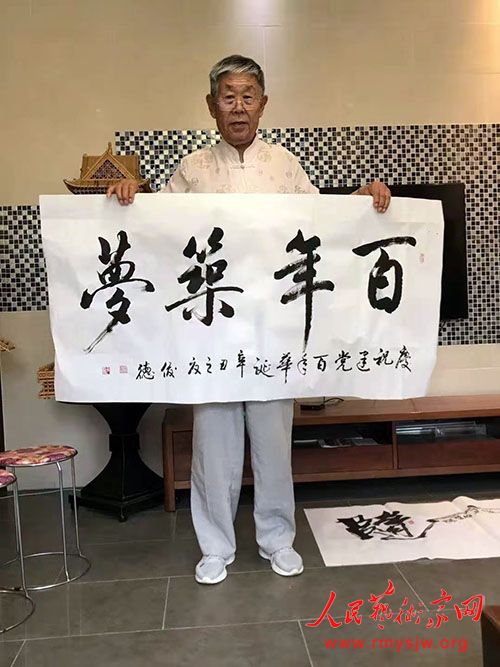 百年築夢
慶祝建党百年華诞辛丑之夏俊德
人民藝術家网
www.rmysjw.org